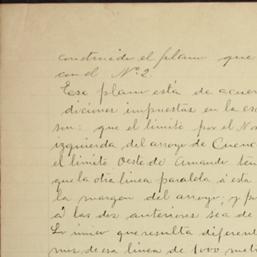 construido el plano que
con el Nº 2.
Ese plano está de acuer
diciones impuestas en la es
son: que el límite por el No
izquierda del arroyo de Cuenc
el límite Oeste de Amando ten
que la otra linea paralela á esta
la margen del arroyo; y p
á las dos anteriores sea de
Lo único que resulta diferent
mis, de esa línea de 1000 metr